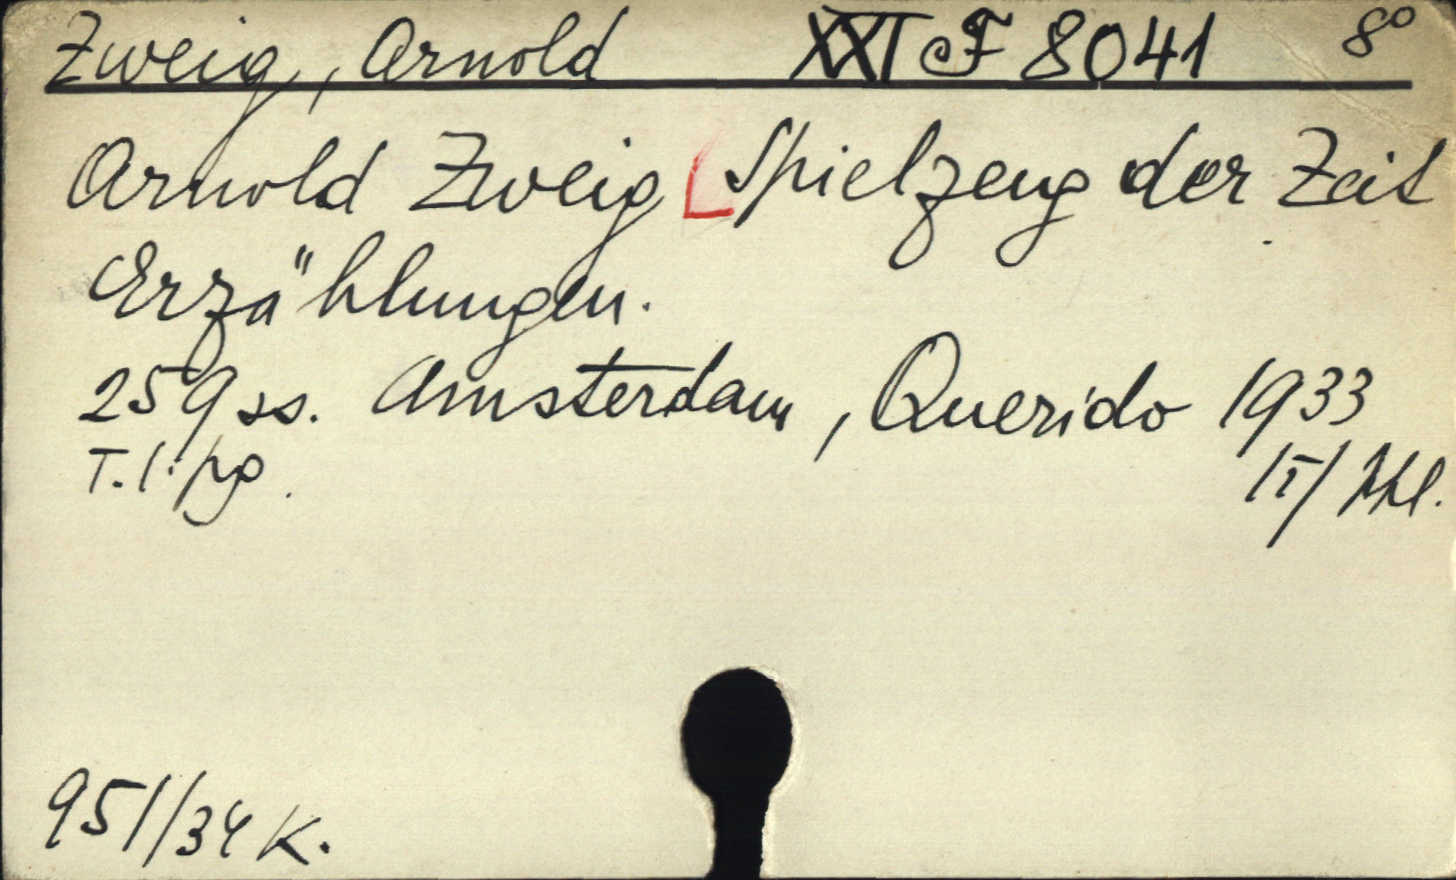 Zweig, Arnold XXI F 8041 8°
Arnold Zweig Spielzeug der Zeit
Erzählungen.
259 ss. Amsterdam, Querido 1933
T. l. pg.
951/34 K.